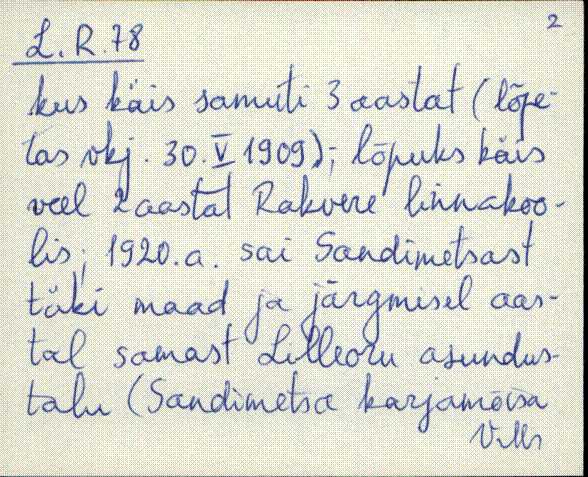 2
L.R.78
kus käis samuti 3 aastat (lõpe-
tas vkj. 30.V 1909); lõpuks käis
veel 2 aastat Rakvere linnakoo-
lis; 1920.a. sai Sandimetsast
tüki maad ja järgmisel aas-
tal samast Lilleoru asundus-
talu (Sandimetsa karjamõisa